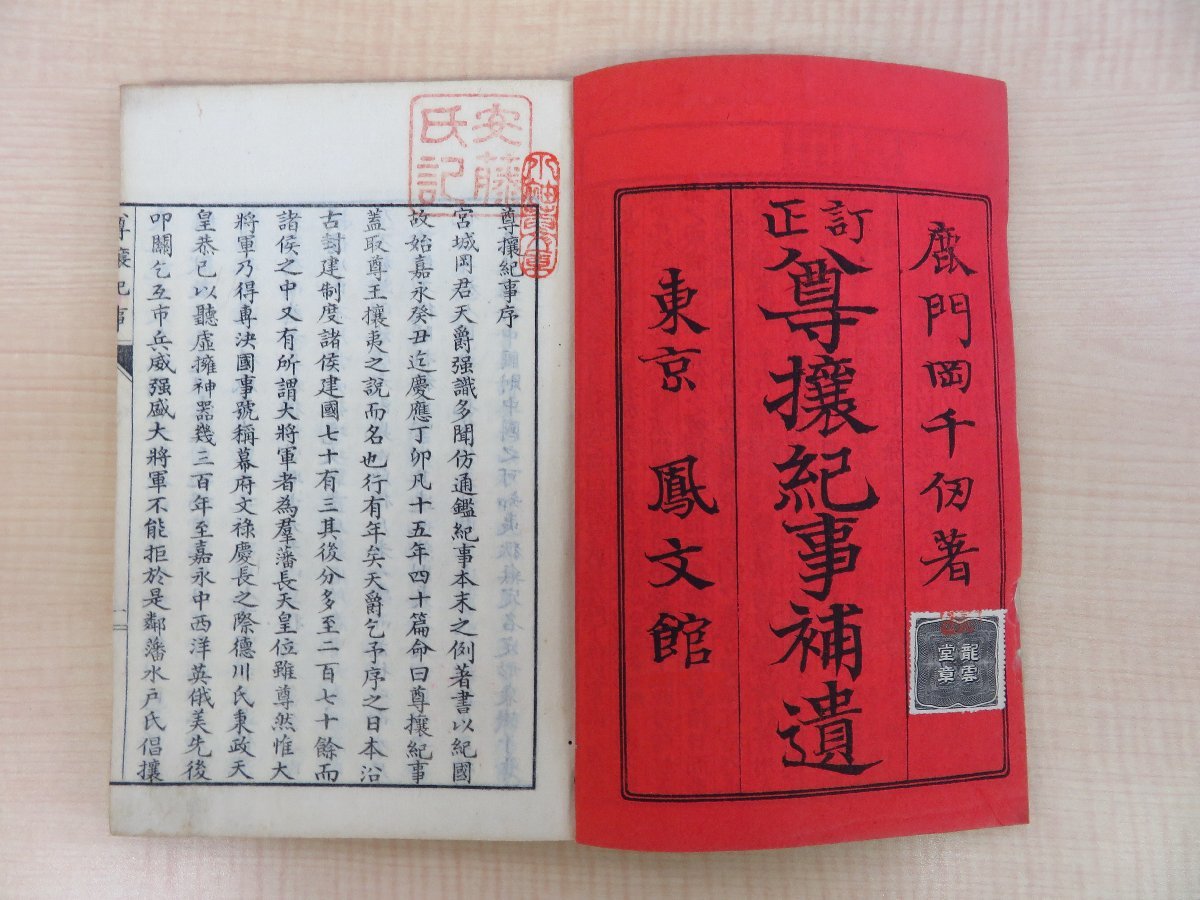 鹿門岡千仞著
訂正
尊攘紀事補遺
東京 鳳文館
龍雲
堂章
安藤
氏記
尊攘紀事序
宮城岡君天爵强識多聞仿通鑑紀事本末之例著書以紀國
故始嘉永癸丑迄慶應丁卯凡十五年四十篇命曰尊攘紀事
蓋取尊王攘夷之說而名也行有年矣天爵乞予序之日本沿
古封建制度諸侯建國七十有三其後分多至二百七十餘而
諸侯之中又有所謂大將軍者為羣藩長天皇位雖尊然惟大
將軍乃得專決國事號稱幕府文祿慶長之際德川氏秉政天
皇恭己以聽虛擁神器幾三百年至嘉永中西洋英俄美先後
叩關乞互市兵威强盛大將軍不能拒於是鄰藩水戶氏倡攘
尊攘紀事